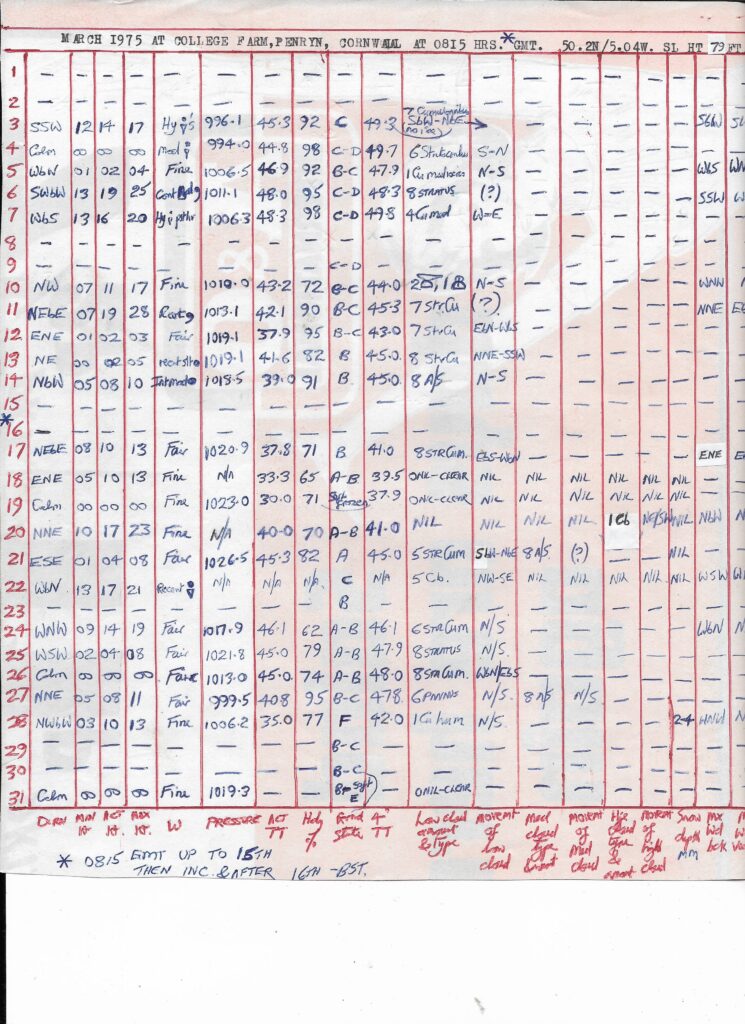 MARCH 1975 AT COLLEGE FARM, PENRYN, CORNWALL AT 0815 HRS.* GMT. 50.2N/5.04W. SL HT 79 FT
1 — — — — — — — — — — — — — — — — — —
2 — — — — — — — — — — — — — — — — — —
3 SSW 12 14 17 996.1 45.3 92 C 49.3 7 Cumulonimbus SbW-NbE (no ice) — — — — — SbW
4 Calm 00 00 00 994.0 44.8 98 C-D 49.7 6 Stratocumulus S-N — — — — — —
5 WbN 01 02 04 Fine 1006.5 46.9 92 B-C 47.9 N-S — — — — — WbS
6 SWbW 13 19 25 1011.1 48.0 95 C-D 48.3 8 STRATUS (?) — — — — — SSW
7 WbS 13 16 20 1006.3 48.3 98 C-D 49.8 4 Cumed W=E — — — — — —
8 — — — — — — — — — — — — — — — — —
9 — — — — — — — — C-D — — — — — — — —
10 NW 07 11 17 Fine 1010.0 43.2 72 B-C 44.0 N-S — — — — — WNW
11 NEbE 07 19 28 1013.1 42.1 90 B-C 45.3 7 StrCu (?) — — — — — NNE
12 ENE 01 02 03 Fair 1019.1 37.9 95 B-C 43.0 7 StrCu — — — — — —
13 NE 00 02 05 1019.1 41.6 82 B 45.0 8 StrCu NNE-SSW — — — — — —
14 NbW 05 08 10 1018.5 39.0 91 B 45.0 8 A/S N-S — — — — — —
15 — — — — — — — — — — — — — — — — —
*
16 — — — — — — — — — — — — — — — — —
17 NEbE 08 10 13 Fair 1020.9 37.8 71 B 41.0 8 StrCum. EbS-WbN — — — — — ENE
18 ENE 05 10 13 Fine N/A 33.3 65 A-B 39.5 ONIL-CLEAR NIL NIL NIL NIL NIL NIL —
19 Calm 00 00 00 Fine 1023.0 30.0 71 Sgt frozen 37.9 ONIL-CLEAR NIL NIL NIL NIL NIL NIL —
20 NNE 10 17 23 Fine N/A 40.0 70 A-B 41.0 NIL NIL NIL NIL 1 Cb NIL NbW
21 ESE 01 04 08 Fair 1026.5 45.3 82 A 45.0 5 STRCum SbW-NbE 8 A/S (?) — — NIL —
22 WbN 13 17 21 Recent N/A N/A N/A C N/A 5 Cb. NW-SE NIL NIL NIL NIL NIL WSW
23 — — — — — — — — B — — — — — — — —
24 WNW 09 14 19 Fair 1017.9 46.1 62 A-B 46.1 6 STRCum N/S — — — — — WbN
25 WSW 02 04 08 Fair 1021.8 45.0 79 A-B 47.9 8 STRATUS N/S — — — — — —
26 Calm 00 00 00 Fair 1013.0 45.0 74 A-B 48.0 8 StrCum. WbN/EbS — — — — — —
27 NNE 05 08 11 Fair 999.5 408 95 B-C 478 N/S 8 A/S N/S. — — — —
28 NWbW 03 10 13 Fine 1006.2 35.0 77 F 42.0 1 Cu hum N/S. — — — — 24 WNW
29 — — — — — — — — B-C — — — — — — — —
30 — — — — — — — — B-C — — — — — — — —
31 Calm 00 00 00 Fine 1019.3 — — Sgt E — ONIL-CLEAR — — — — — — —
DIRN MIN Kt ACT Kt. MAX Kt. W PRESSURE ACT TT Hdy % Grnd State 4" TT Low cloud amount & type MOVEMT of Low cloud Med cloud Type amount MOVEMT of Med cloud High cloud type & amount MOVEMT of high cloud Snow depth MM MX Wd bck
* 0815 GMT UP TO 15TH
THEN INC. & AFTER 16TH -BST.